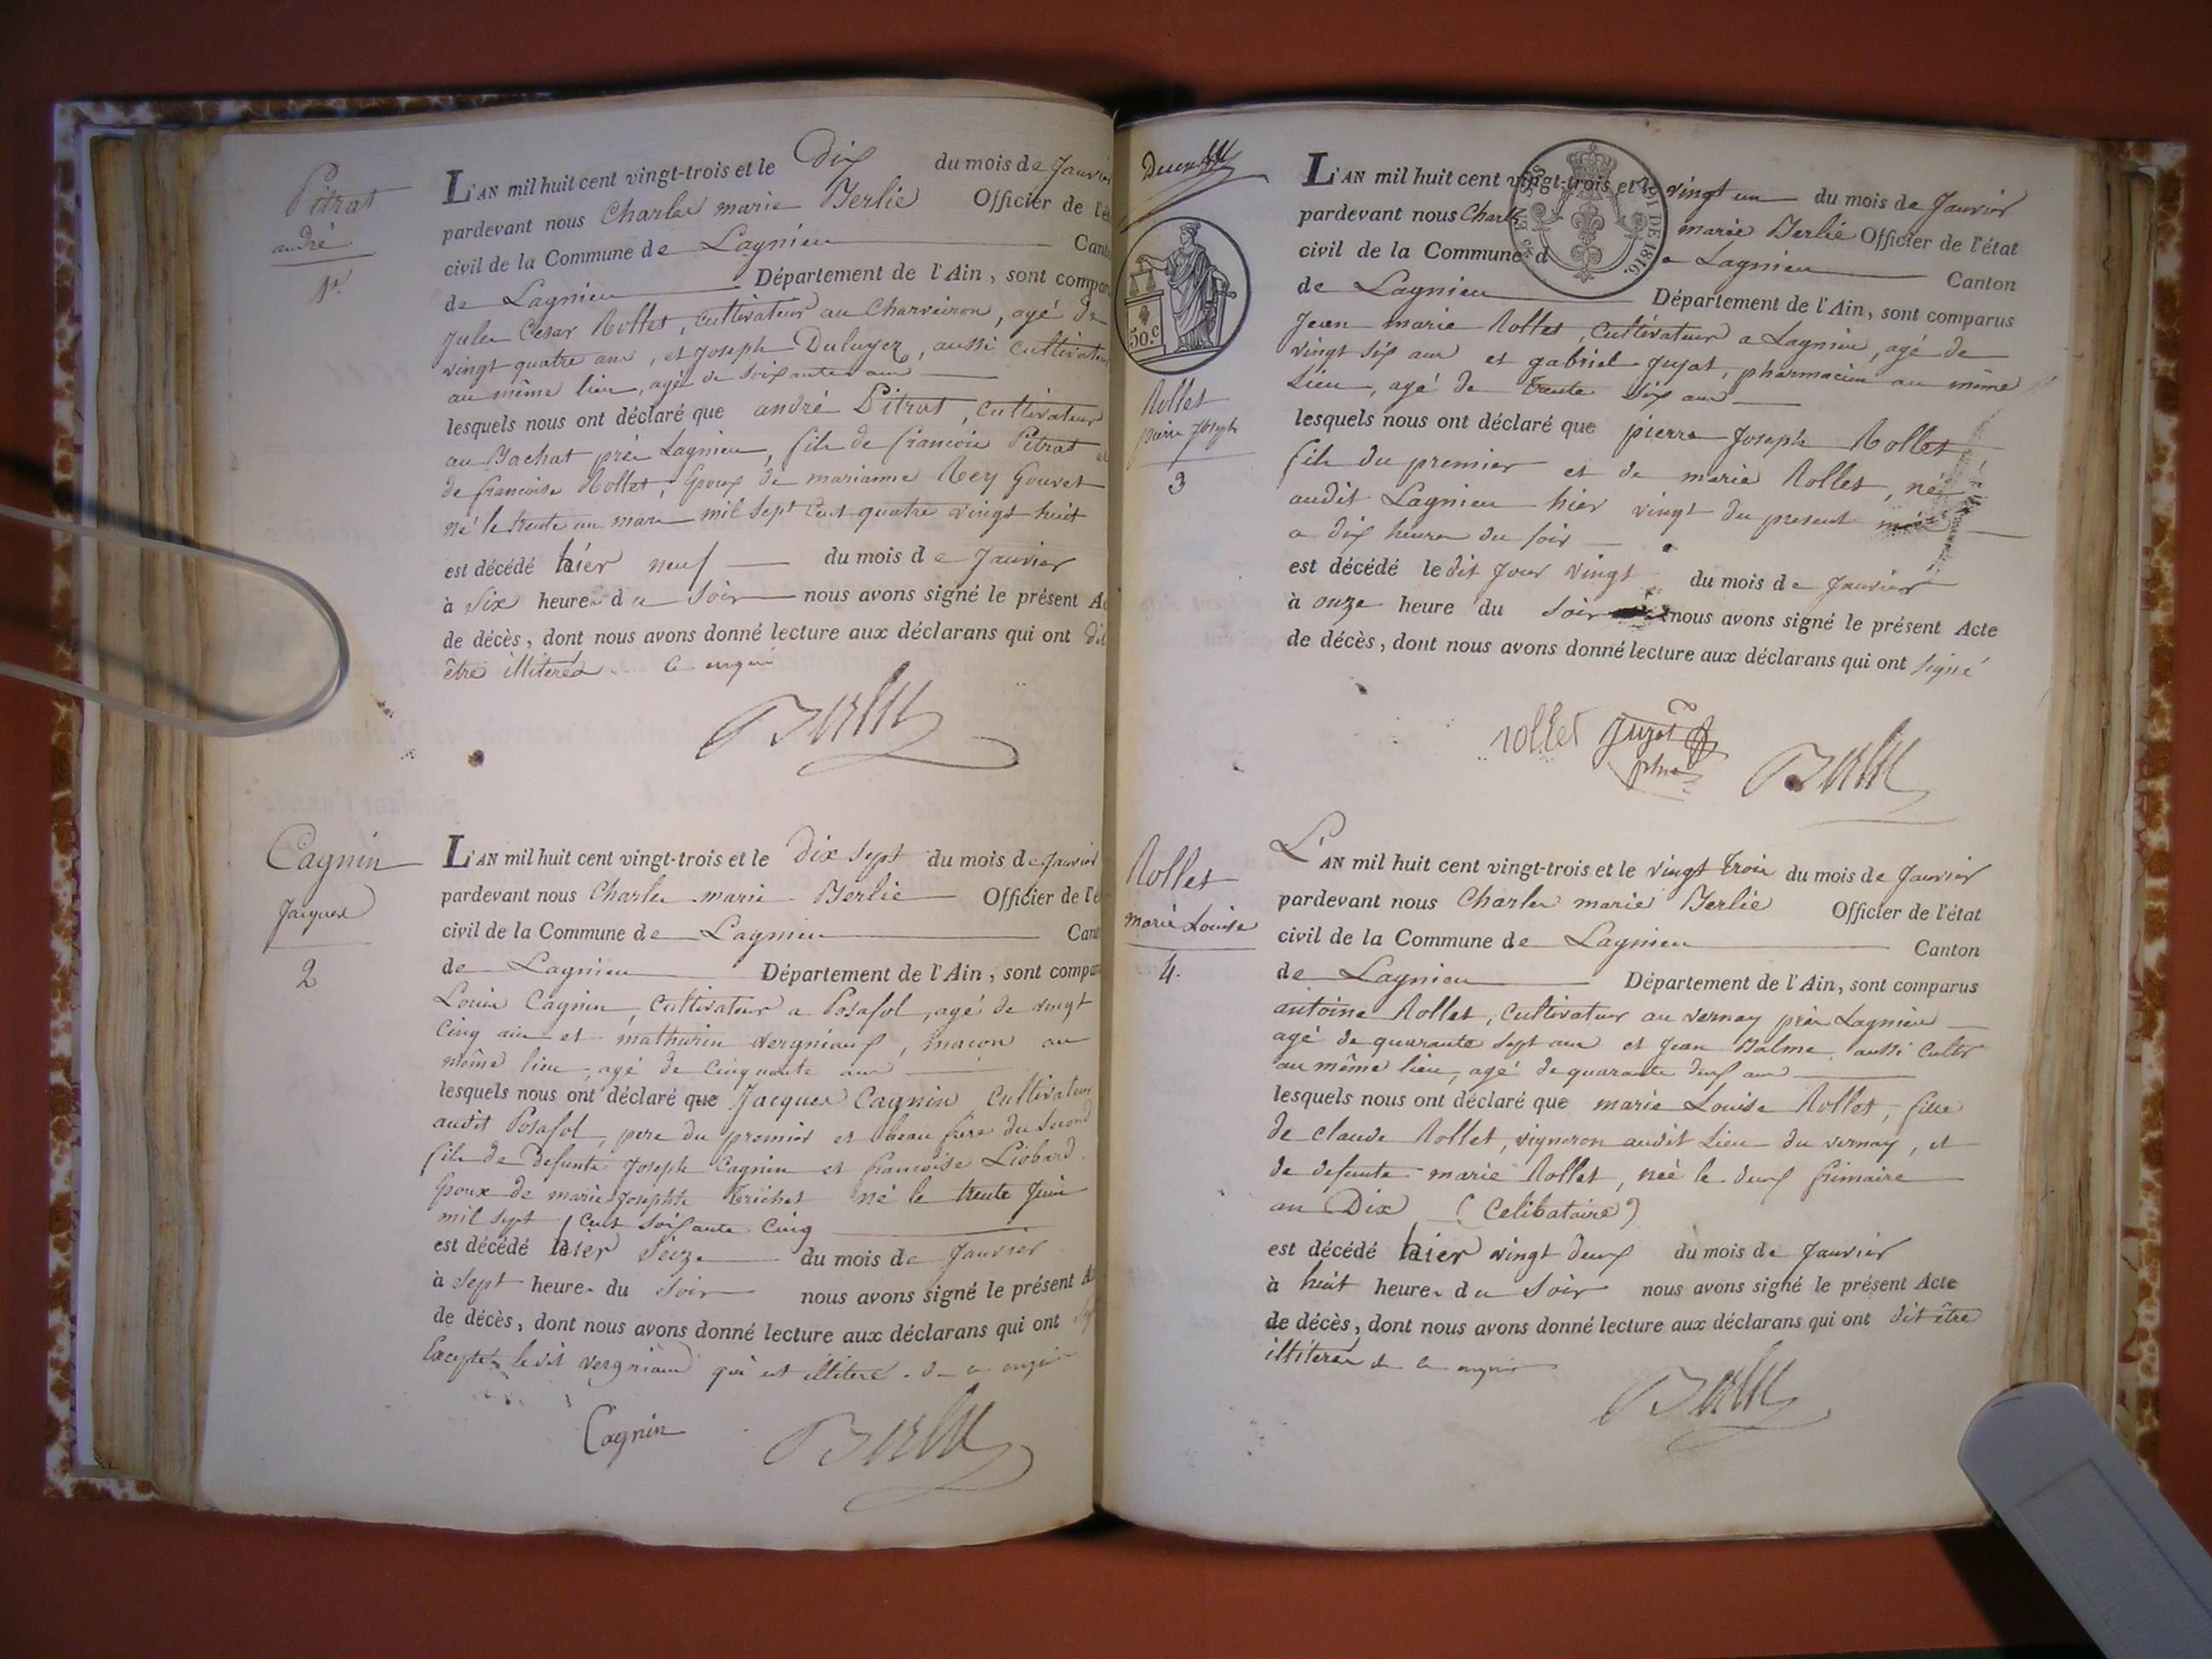 Pitrat
andré
1er
L'AN mil huit cent vingt-trois et le Dix du mois de Janvier
pardevant nous Charles marie Berlie Officier de l'ét
civil de la Commune de Lagnieu Cant
de Lagnieu Département de l'Ain, sont compar
Jules Cesar Rollet, cultivateur au Charveiron, agé de
vingt quatre ans, et Joseph Duluyer, aussi cultivateur
au même lieu, agé de soixante ans
lesquels nous ont déclaré que andré Pitrat, cultivateur
au Bachat près Lagnieu, fils de francois Pitrat et
de francoise Rollet, Epoux de marianne Rey Gouvet
né le trente un mars mil sept Cent quatre vingt huit
est décédé hier neuf du mois de Janvier
à Six heures du Soir nous avons signé le présent Ac
de décès, dont nous avons donné lecture aux déclarans qui ont dit
être illiterés ce enquis
Berlie
Cagnin
Jacques
2
L'AN mil huit cent vingt-trois et le Dix sept du mois de Janvier
pardevant nous Charles marie Berlie Officier de l'é
civil de la Commune de Lagnieu Cant
de Lagnieu Département de l'Ain, sont compar
Louis Cagnin, Cultivateur a Posafol, agé de vingt
Cinq ans et mathurin Vergniaux, macon au
même lieu, agé de Cinquante ans
lesquels nous ont déclaré que Jacques Cagnin Cultivateur
audit Posafol, pere du premier et beau frere du Second
fils de Defunts Joseph Cagnin et francoise Liobard
Epoux de marie Josephte Trichet né le trente Juin
mil sept Cent Soixante Cinq
est décédé hier Seize du mois de Janvier
à Sept heures du Soir nous avons signé le présent Ac
de décès, dont nous avons donné lecture aux déclarans qui ont
Excepté ledit Vergniaud qui est illiteré. de ce enquis
Cagnin Berlie
50.c
Rollet
pierre Joseph
3
L'AN mil huit cent vingt-trois et le vingt un du mois de Janvier
pardevant nous Charles marie Berlie Officier de l'état
civil de la Commune de Lagnieu Canton
de Lagnieu Département de l'Ain, sont comparus
Jean marie Rollet, Cultivateur a Lagnieu, agé de
vingt six ans et gabriel Juyat, pharmacien au même
Lieu, agé de trente Six ans
lesquels nous ont déclaré que pierre Joseph Rollet
fils du premier et de marie Rollet, né
audit Lagnieu hier vingt du present mois
a dix heures du soir
est décédé ledit Jour Vingt du mois de Janvier
à onze heure du Soir nous avons signé le présent Acte
de décès, dont nous avons donné lecture aux déclarans qui ont Signé
rollet Juyat phien Berlie
LOI DE 1816.
Rollet
marie Louise
4.
L'AN mil huit cent vingt-trois et le vingt trois du mois de Janvier
pardevant nous Charles marie Berlie Officier de l'état
civil de la Commune de Lagnieu Canton
de Lagnieu Département de l'Ain, sont comparus
antoine Rollet, Cultivateur au vernay près Lagnieu
agé de quarante sept ans et Jean Balme, aussi Cultr
au même lieu, agé de quarante deux ans
lesquels nous ont déclaré que marie Louise Rollet, fille
de claude Rollet, vigneron audit Lieu du vernay, et
de defunte marie Rollet, neé le deux frimaire
an Dix (Celibataire)
est décédé hier vingt deux du mois de Janvier
à huit heures du Soir nous avons signé le présent Acte
de décès, dont nous avons donné lecture aux déclarans qui ont dit être
illiterés de ce enquis
Berlie